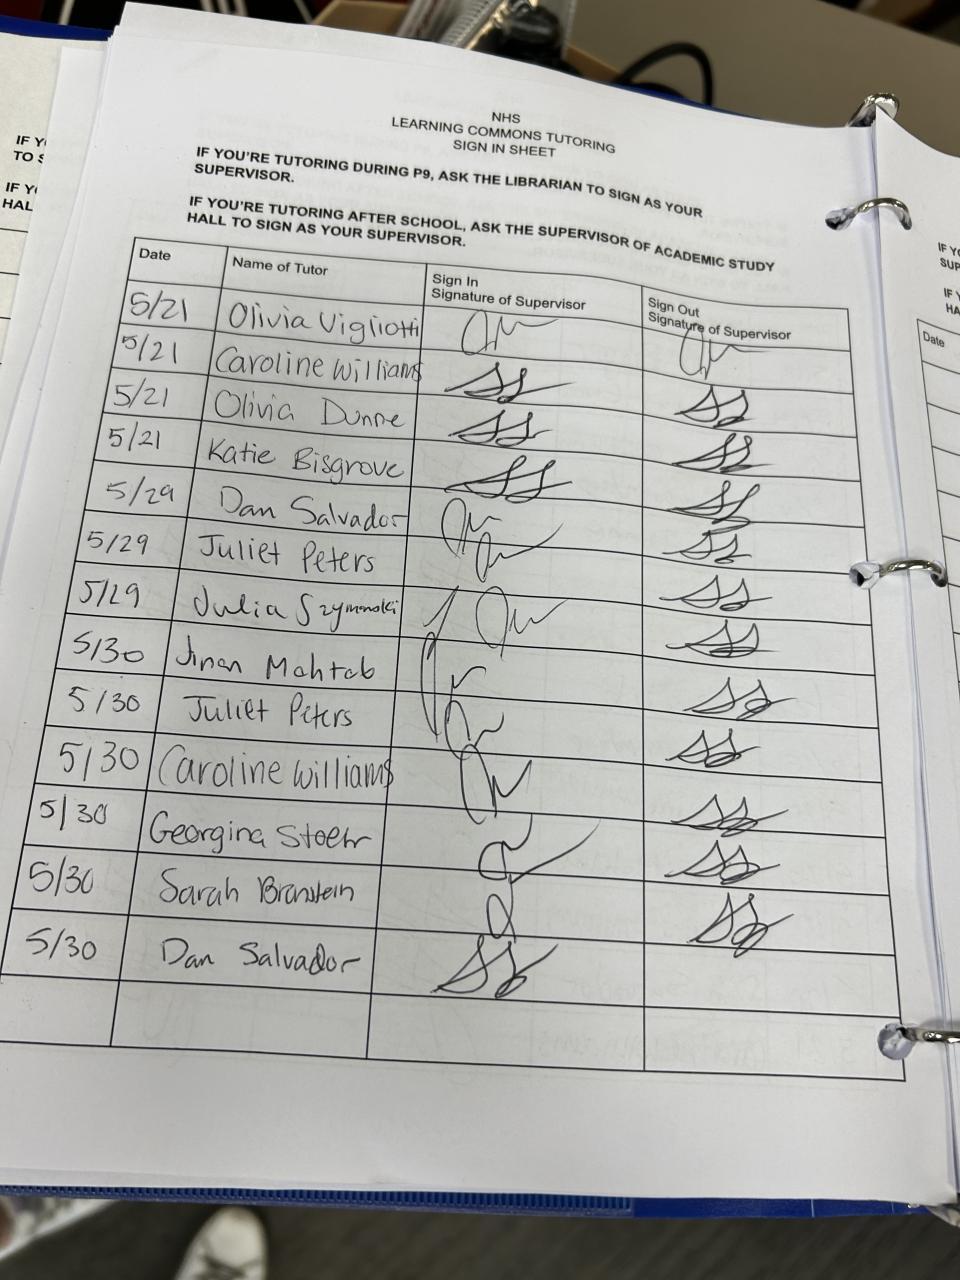 NHS
LEARNING COMMONS TUTORING
SIGN IN SHEET
IF YOU'RE TUTORING DURING P9, ASK THE LIBRARIAN TO SIGN AS YOUR
SUPERVISOR.
IF YOU'RE TUTORING AFTER SCHOOL, ASK THE SUPERVISOR OF ACADEMIC STUDY
HALL TO SIGN AS YOUR SUPERVISOR.
Date Name of Tutor Sign In Signature of Supervisor Sign Out Signature of Supervisor
5/21 Olivia Vigliotti
5/21 Caroline Williams SS SS
5/21 Olivia Dunne SS SS
5/21 Katie Bisgrove SS SS
5/29 Dan Salvador SS
5/29 Juliet Peters SS
5/29 Julia Szymanski SS
5/30 Jinan Mahtab SS
5/30 Juliet Peters SS
5/30 Caroline Williams SS
5/30 Georgina Stoehr SS
5/30 Sarah SS
5/30 Dan Salvador SS
IF Y
TO S
IF Y
HAL
IF Y
SUP
IF Y
HA
Date